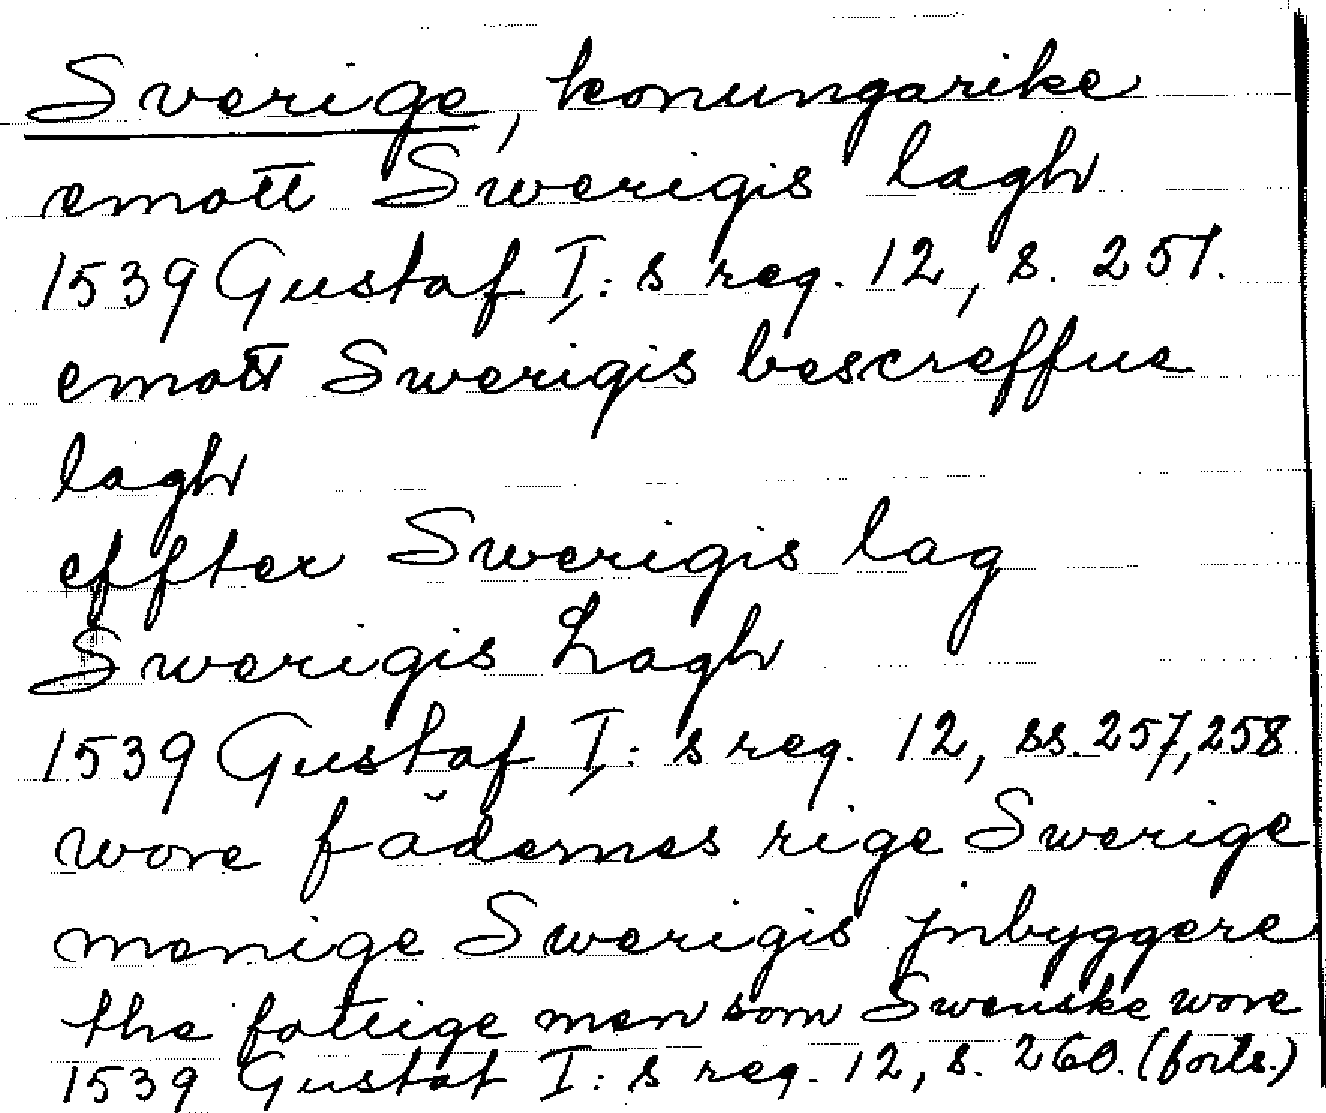 Sverige, konungarike
emott Swerigis lagh
1539 Gustaf I: s reg. 12, s. 257.
emott Swerigis bescreffue
lagh
effter Swerigis lag
Swerigis Lagh
1539 Gustaf I: s reg. 12, ss. 257, 258
wore fădernes rige Swerige
menige Swerigis jnbyggere
the fattige men som Swenske wore
1539 Gustaf I: s reg. 12, s. 260. (forts.)